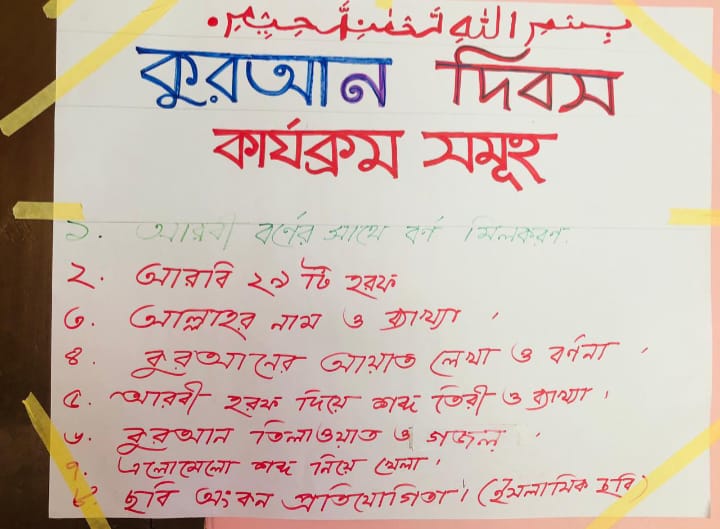 بسم الله الرحمن الرحيم
কুরআন দিবস
কার্যক্রম সমূহ
১. আরবী বর্ণের সাথে বর্ণ মিলকরণ.
২. আরবি ২৯ টি হরফ
৩. আল্লাহর নাম ও ব্যাখ্যা ।
৪. কুরআনের আয়াত লেখা ও বর্ণনা ।
৫. আরবী হরফ দিয়ে শব্দ তৈরী ও ব্যাখ্যা ।
৬. কুরআন তিলাওয়াত ও গজল ।
৭. এলোমেলো শব্দ নিয়ে খেলা ।
৮. ছবি অংকন প্রতিযোগিতা । (ইসলামিক ছবি)